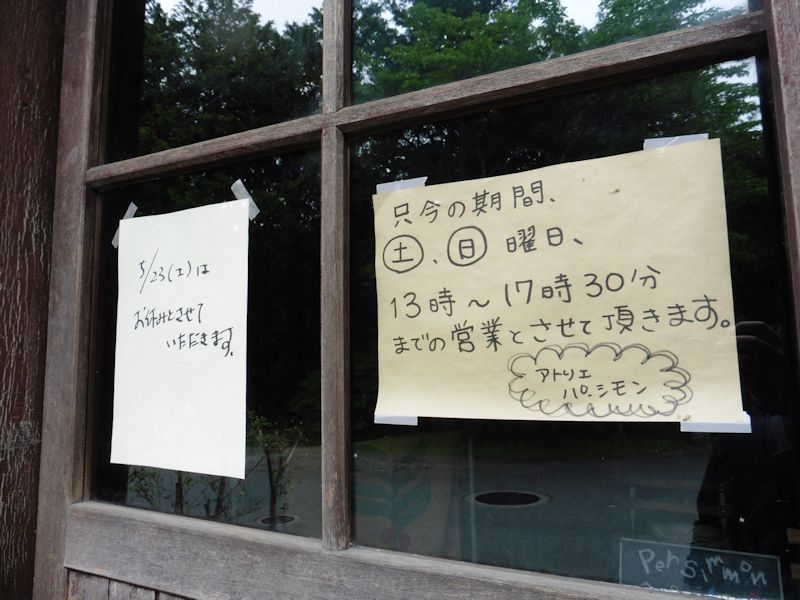 5/23(土)は
お休みとさせて
いただきます。
只今の期間、
土、日曜日、
13時〜17時30分
までの営業とさせて頂きます。
アトリエ
パ.シモン
Persimmon